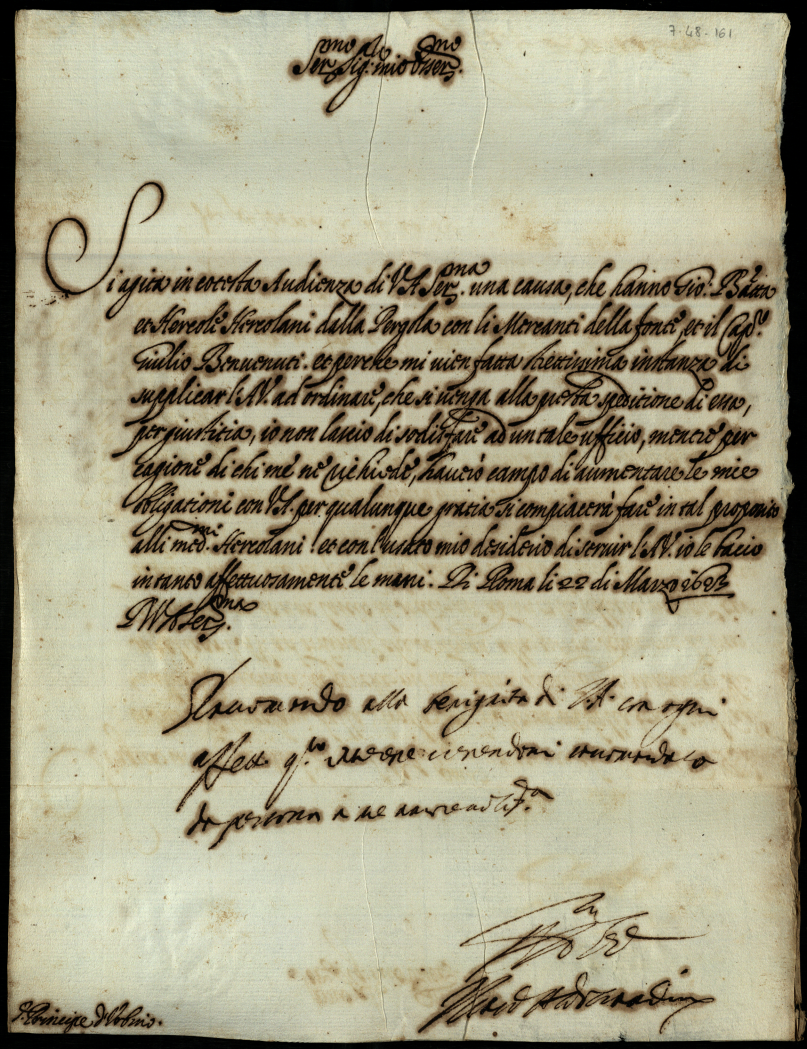 7-48-161
Ser.mo Sig.r mio Osser.mo
Si agita in cotesta Audienza di V A Ser.ma una causa, che hanno Gio: Batta
et Hercole Hercolani dalla Pergola con li Mercanti della fonte et il Cap.no
Giulio Benvenuti. et perche mi vien fatta strettissima instanza di
supplicar l'A V. ad ordinare, che si venga alla presta speditione di essa,
per giustitia, io non lascio di sodisfare ad un tale ufficio, mentre per
cagione di chi me ne richiede, haverò campo di aumentare le mie
obligationi con V A. per qualunque gratia si compiacerà fare in tal proposito
alli med.mi Hercolani. et con l'usato mio desiderio di servir l'A V. io le bacio
in tanto affettuosamente le mani. Di Roma li 22 di Marzo 1623
D V A Ser.ma
Raccomando alla benignità di V.A. con ogni
affetto q.to essendomi raccomandato
da persona a me
S.r Principe d'Urbino.